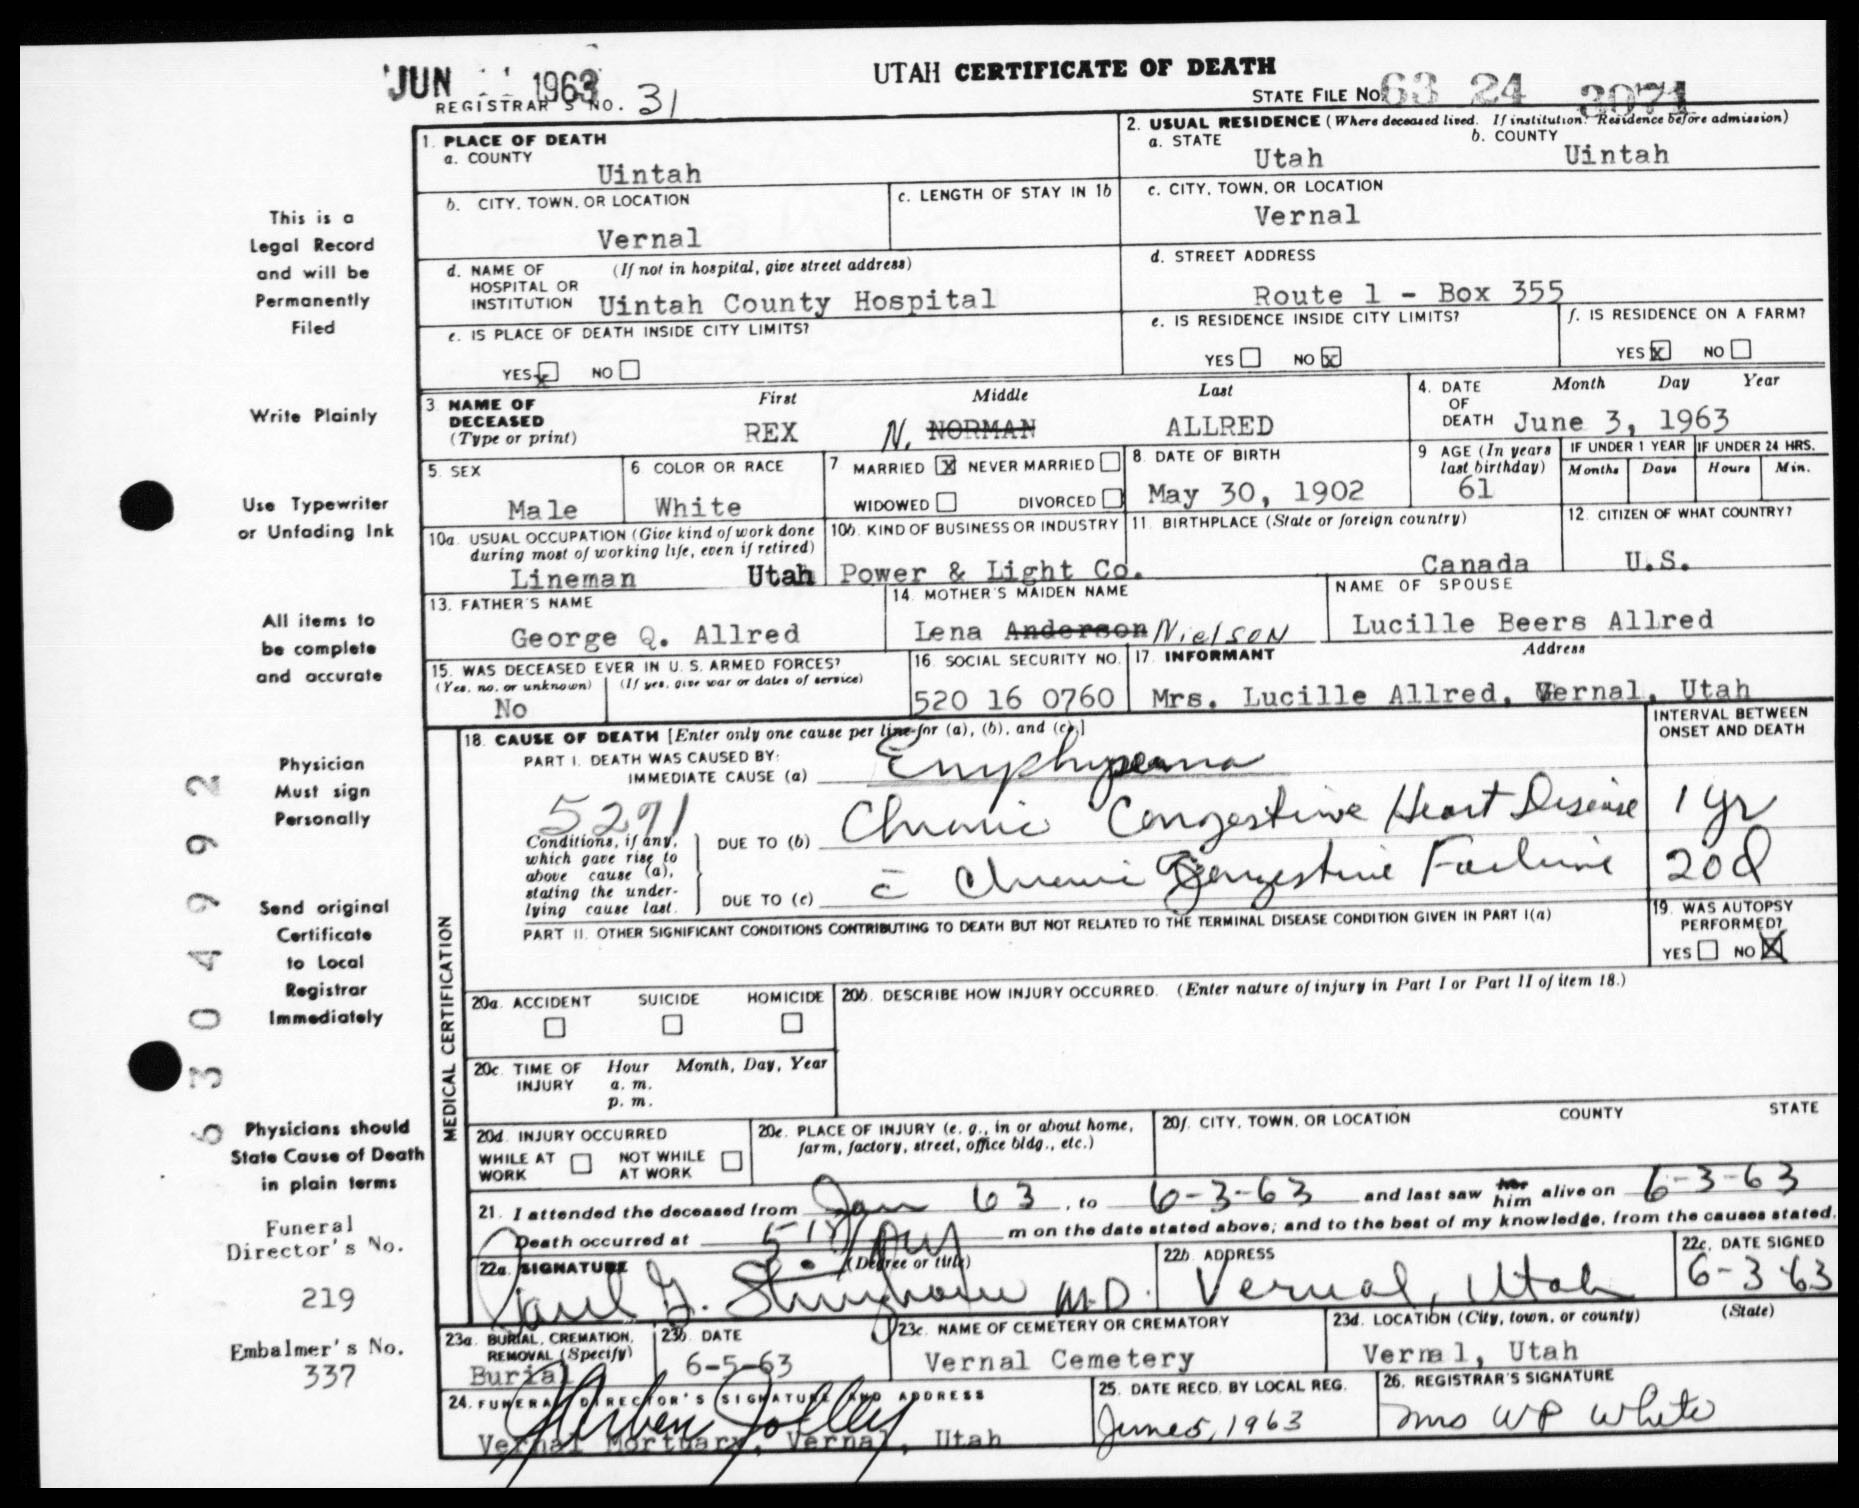 JUN 1963
UTAH CERTIFICATE OF DEATH
REGISTRAR'S NO. 31
STATE FILE NO. 63 24 3071
1. PLACE OF DEATH
a. COUNTY
Uintah
2. USUAL RESIDENCE (Where deceased lived. If institution: Residence before admission)
a. STATE
Utah
b. COUNTY
Uintah
b. CITY, TOWN, OR LOCATION
Vernal
c. LENGTH OF STAY IN 1b
c. CITY, TOWN, OR LOCATION
Vernal
d. NAME OF HOSPITAL OR INSTITUTION
(If not in hospital, give street address)
Uintah County Hospital
d. STREET ADDRESS
Route 1 - Box 355
e. IS PLACE OF DEATH INSIDE CITY LIMITS?
YES x NO
e. IS RESIDENCE INSIDE CITY LIMITS?
YES NO x
f. IS RESIDENCE ON A FARM?
YES x NO
3. NAME OF DECEASED
(Type or print)
First Middle Last
REX N. NORMAN ALLRED
4. DATE OF DEATH
Month Day Year
June 3, 1963
5. SEX
Male
6 COLOR OR RACE
White
7 MARRIED x NEVER MARRIED
WIDOWED DIVORCED
8. DATE OF BIRTH
May 30, 1902
9 AGE (In years last birthday)
61
IF UNDER 1 YEAR
Months Days
IF UNDER 24 HRS.
Hours Min.
10a. USUAL OCCUPATION (Give kind of work done during most of working life, even if retired)
Lineman
10b. KIND OF BUSINESS OR INDUSTRY
Utah Power & Light Co.
11. BIRTHPLACE (State or foreign country)
Canada
12. CITIZEN OF WHAT COUNTRY?
U.S.
13. FATHER'S NAME
George Q. Allred
14. MOTHER'S MAIDEN NAME
Lena Anderson Nielson
NAME OF SPOUSE
Lucille Beers Allred
15. WAS DECEASED EVER IN U. S. ARMED FORCES?
(Yes, no, or unknown) (If yes, give war or dates of service)
No
16. SOCIAL SECURITY NO.
520 16 0760
17. INFORMANT
Address
Mrs. Lucille Allred, Vernal, Utah
MEDICAL CERTIFICATION
18. CAUSE OF DEATH [Enter only one cause per line for (a), (b), and (c).]
INTERVAL BETWEEN ONSET AND DEATH
PART I. DEATH WAS CAUSED BY:
IMMEDIATE CAUSE (a) Emphysema
5271
Conditions, if any, which gave rise to above cause (a), stating the underlying cause last.
DUE TO (b) Chronic Congestive Heart Disease 1 yr
DUE TO (c) c̄ Chronic Congestive Failure 20d
PART II. OTHER SIGNIFICANT CONDITIONS CONTRIBUTING TO DEATH BUT NOT RELATED TO THE TERMINAL DISEASE CONDITION GIVEN IN PART I(a)
19. WAS AUTOPSY PERFORMED?
YES NO X
20a. ACCIDENT SUICIDE HOMICIDE
20b. DESCRIBE HOW INJURY OCCURRED. (Enter nature of injury in Part I or Part II of item 18.)
20c. TIME OF INJURY
Hour Month, Day, Year
a. m.
p. m.
20d. INJURY OCCURRED
WHILE AT WORK NOT WHILE AT WORK
20e. PLACE OF INJURY (e. g., in or about home, farm, factory, street, office bldg., etc.)
20f. CITY, TOWN, OR LOCATION COUNTY STATE
21. I attended the deceased from Jan 63, to 6-3-63 and last saw her him alive on 6-3-63
Death occurred at m on the date stated above; and to the best of my knowledge, from the causes stated.
22a. SIGNATURE (Degree or title)
Paul G. Stringham M.D.
22b. ADDRESS
Vernal, Utah
22c. DATE SIGNED
6-3-63
23a. BURIAL, CREMATION, REMOVAL (Specify)
Burial
23b. DATE
6-5-63
23c. NAME OF CEMETERY OR CREMATORY
Vernal Cemetery
23d. LOCATION (City, town, or county) (State)
Vernal, Utah
24. FUNERAL DIRECTOR'S SIGNATURE AND ADDRESS
Vernal Mortuary, Vernal, Utah
25. DATE RECD. BY LOCAL REG.
June 5, 1963
26. REGISTRAR'S SIGNATURE
Mrs WP White
This is a
Legal Record
and will be
Permanently
Filed
Write Plainly
Use Typewriter
or Unfading Ink
All items to
be complete
and accurate
Physician
Must sign
Personally
Send original
Certificate
to Local
Registrar
Immediately
Physicians should
State Cause of Death
in plain terms
Funeral
Director's No.
219
Embalmer's No.
337
6304992